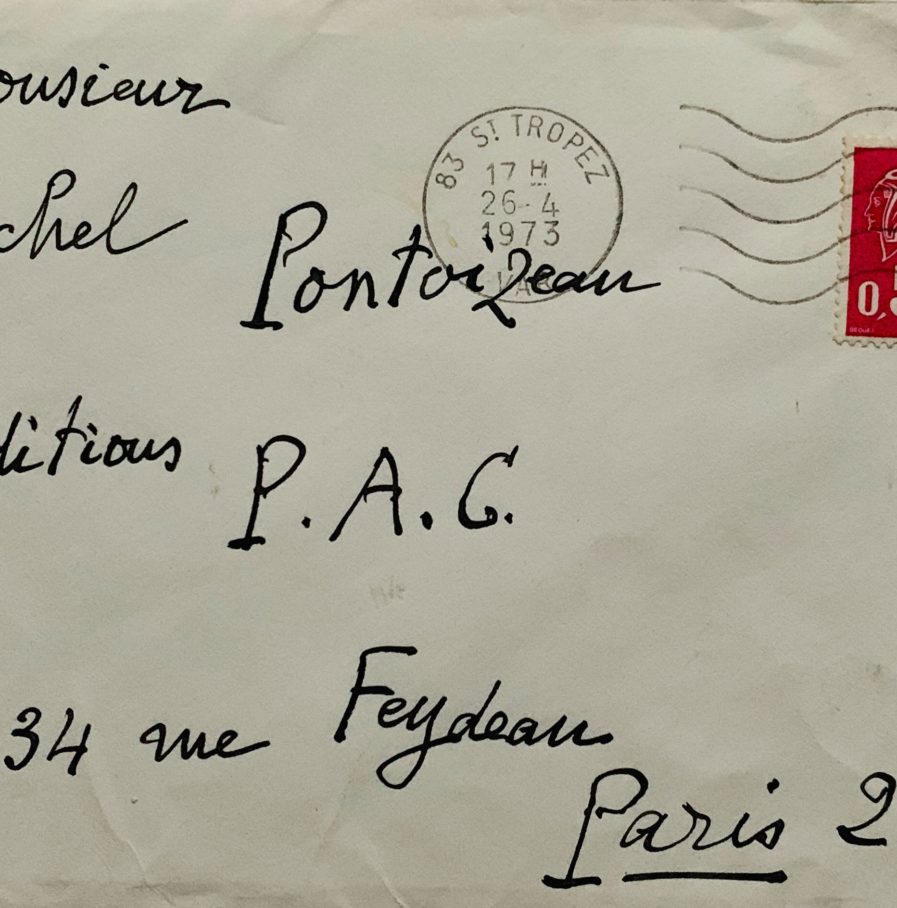 ousieur
83 ST TROPEZ
17 H
26-4
1973
VAR
chel Pontoizeau
0,5
ditions P.A.C.
34 rue Feydeau
Paris 2